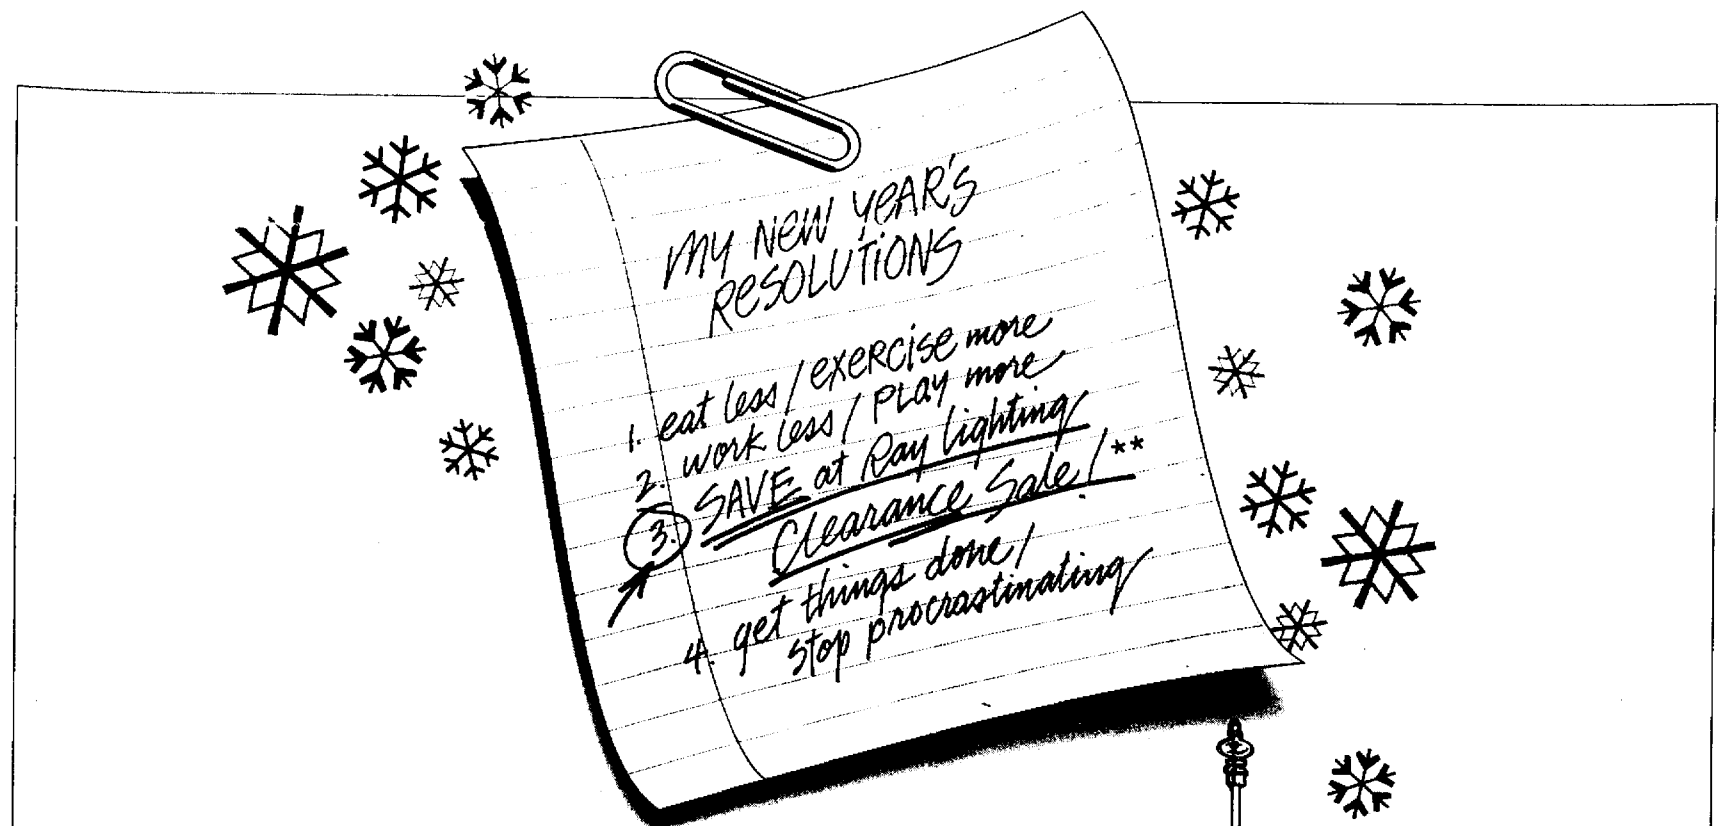 MY NEW YEAR'S
RESOLUTIONS
1. eat less / EXERCISE more
2. work less / PLAY more
3. SAVE at Ray Lighting
Clearance Sale! **
4. get things done /
stop procrastinating